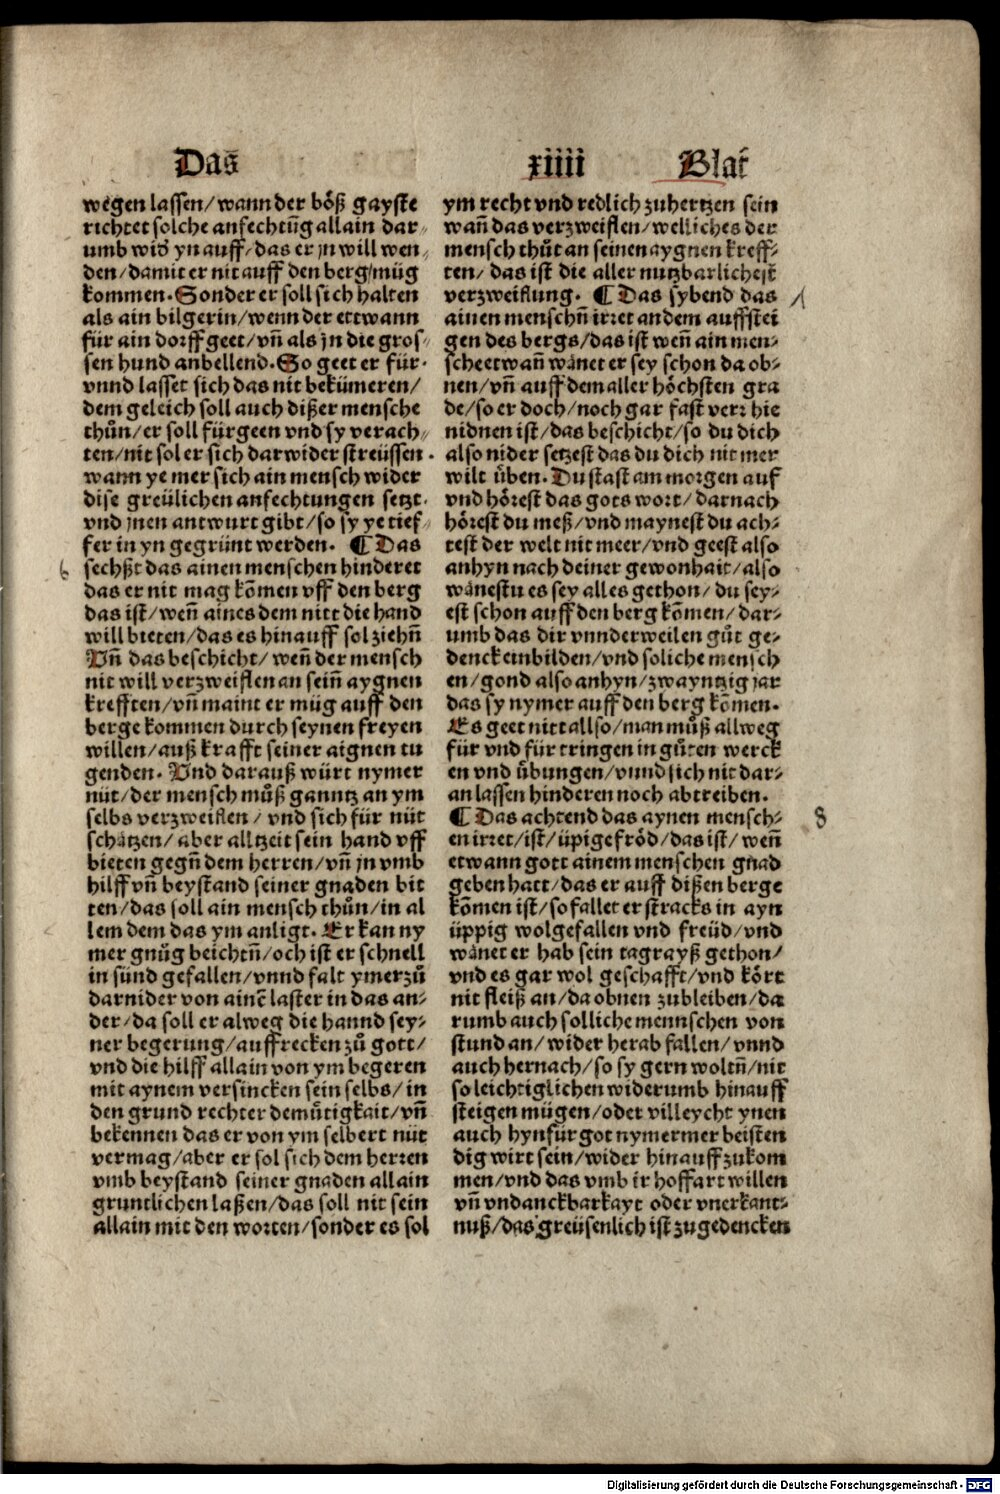 Das xiiii Blat̄
wegen lassen/ wann der böß gayste
richtet solche anfechtūg allain dar⸗
umb wid̄ yn auff/ das er jn will wen⸗
den/ damit er nit auff den berg müg
kommen. Sonder er soll sich halten
als ain bilgerin/ wenn der ettwann
für ain dorff geet/ vn̄ als jn die gros⸗
sen hund anbellend. So geet er für.
vnnd lasset sich das nit bekümeren/
dem geleich soll auch dißer mensche
thůn/ er soll fürgeen vnd sy verach⸗
ten/ nit sol er sich darwider streüssen.
wann ye mer sich ain mensch wider
dise greülichen anfechtungen setzt.
vnd jnen antwurt gibt/ so sy ye tief⸗
fer in yn gegrünt werden. ¶ Das
sechßt das ainen menschen hinderet
das er nit mag kōmen vff den berg
das ist/ wen̄ aines dem nitt die hand
will bieten/ das es hinauff sol ziehn̄
Vn̄ das beschicht/ wen̄ der mensch
nit will verzweiflen an sein̄ aygnen
krefften/ vn̄ maint er müg auff den
berge kommen durch seynen freyen
willen/ auß krafft seiner aignen tu
genden. Vnd darauß würt nymer
nüt/ der mensch můß ganntz an ym
selbs verzweiflen/ vnd sich für nüt
schätzen/ aber alltzeit sein hand vff
bieten gegn̄ dem herren/ vn̄ jn vmb
hilff vn̄ beystand seiner gnaden bit
ten/ das soll ain mensch thůn/ in al
lem dem das ym anligt. Er kan ny
mer gnůg beichtn̄/ och ist er schnell
in sünd gefallen/ vnnd falt ymerzů
darnider von ainē laster in das an⸗
der/ da soll er alweg die hannd sey⸗
ner begerung/ auffrecken zů gott/
vnd die hilff allain von ym begeren
mit aynem versincken sein selbs/ in
den grund rechter demůtigkait/ vn̄
bekennen das er von ym selbert nüt
vermag/ aber er sol sich dem herren
vmb beystand seiner gnaden allain
gruntlichen laßen/ das soll nit sein
allain mit den worten/ sonder es sol
6
ym recht vnd redlich zuhertzen sein
wan̄ das verzweiflen/ welliches der
mensch thůt an seinen aygnen kreff⸗
ten/ das ist die aller nutzbarlichest
verzweiflung. ¶ Das sybend das
ainen menschn̄ irret an dem auffstei
gen des bergs/ das ist wen̄ ain men⸗
sche etwan̄ wänet er sey schon da ob⸗
nen/ vn̄ auff dem aller höchsten gra
de/ so er doch/ noch gar fast verr hie
nidnen ist/ das beschicht/ so du dich
also nider setzest das du dich nit mer
wilt üben. Du stast am morgen auf
vnd hörest das gots wort/ darnach
hörest du meß/ vnd maynest du ach⸗
test der welt nit meer/ vnd geest also
anhyn nach deiner gewonhait/ also
wänestu es sey alles gethon/ du sey⸗
est schon auff den berg kōmen/ dar⸗
umb das dir vnnderweilen gůt ge⸗
denck einbilden/ vnd soliche mensch
en/ gond also anhyn/ zwayntzig jar
das sy nymer auff den berg kōmen.
Es geet nitt allso/ man můß allweg
für vnd für tringen in gůten werck
en vnd übungen/ vnnd sich nit dar⸗
an lassen hinderen noch abtreiben.
¶ Das achtend das aynen mensch⸗
en irret/ ist/ üpige fröd/ das ist/ wen̄
etwann gott ainem menschen gnad
geben hatt/ das er auff dißen berge
kōmen ist/ so fallet er stracks in ayn
üppig wolgefallen vnd freüd/ vnd
wänet er hab sein tagrayß gethon/
vnd es gar wol geschafft/ vnd kört
nit fleiß an/ da obnen zubleiben/ da
rumb auch solliche mennschen von
stund an/ wider herab fallen/ vnnd
auch hernach/ so sy gern woltn̄/ nit
so leichtiglichen widerumb hinauff
steigen mügen/ oder villeycht ynen
auch hynfür got nymermer beisten
dig wirt sein/ wider hinauff zukom
men/ vnd das vmb ir hoffart willen
vn̄ vndanckbarkayt oder vnerkant⸗
nuß/ das greüsenlich ist zugedencken
8
Digitalisierung gefördert durch die Deutsche Forschungsgemeinschaft - DFG